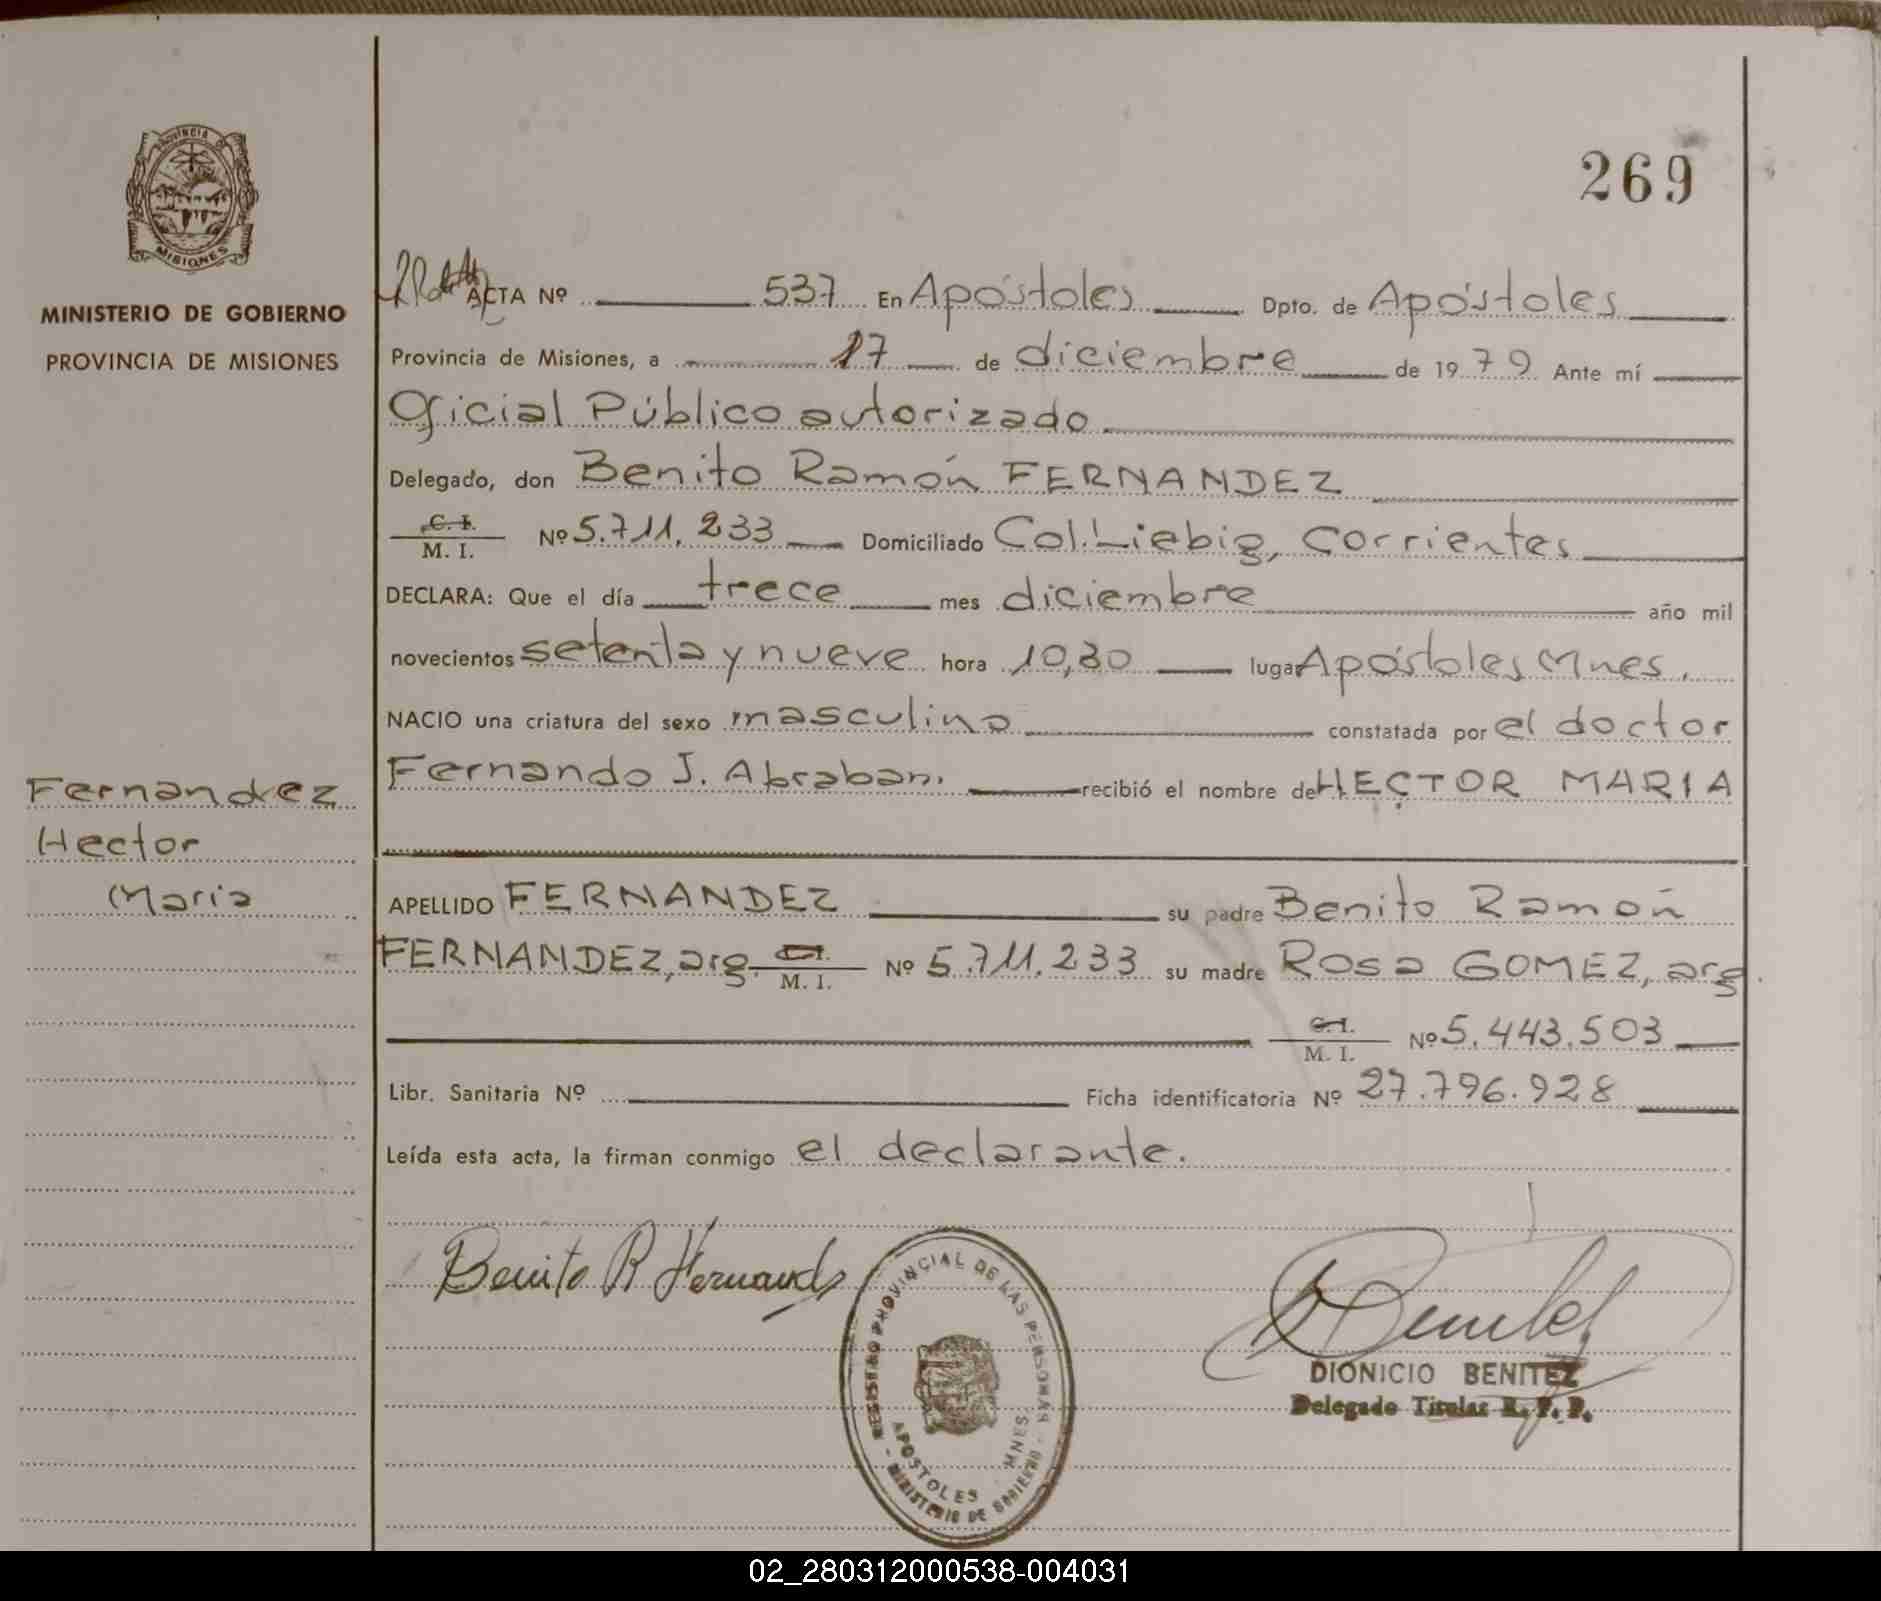 269
PROVINCIA DE
MISIONES
MINISTERIO DE GOBIERNO
PROVINCIA DE MISIONES
ACTA Nº 537 En Apóstoles Dpto. de Apóstoles
Provincia de Misiones, a 17 de diciembre de 1979 Ante mí
Oficial Público autorizado
Delegado, don Benito Ramón FERNANDEZ
C. I.
M. I. Nº 5.711.233 Domiciliado Col. Liebig, Corrientes
DECLARA: Que el día trece mes diciembre año mil
novecientos setenta y nueve hora 10,30 lugar Apóstoles Mnes.
NACIO una criatura del sexo masculino constatada por el doctor
Fernando J. Abraban. recibió el nombre de HECTOR MARIA
Fernandez
Hector
Maria
APELLIDO FERNANDEZ su padre Benito Ramón
FERNANDEZ, arg. C.I.
M. I. Nº 5.711.233 su madre Rosa GOMEZ, arg
C. I.
M. I. Nº 5.443.503
Libr. Sanitaria Nº Ficha identificatoria Nº 27.796.928
Leída esta acta, la firman conmigo el declarante.
Benito R Fernandz
REGISTRO PROVINCIAL DE LAS PERSONAS
APOSTOLES MNES.
- MINISTERIO DE GOBIERNO -
DIONICIO BENITEZ
Delegado Titular R. P. P.
02_280312000538-004031